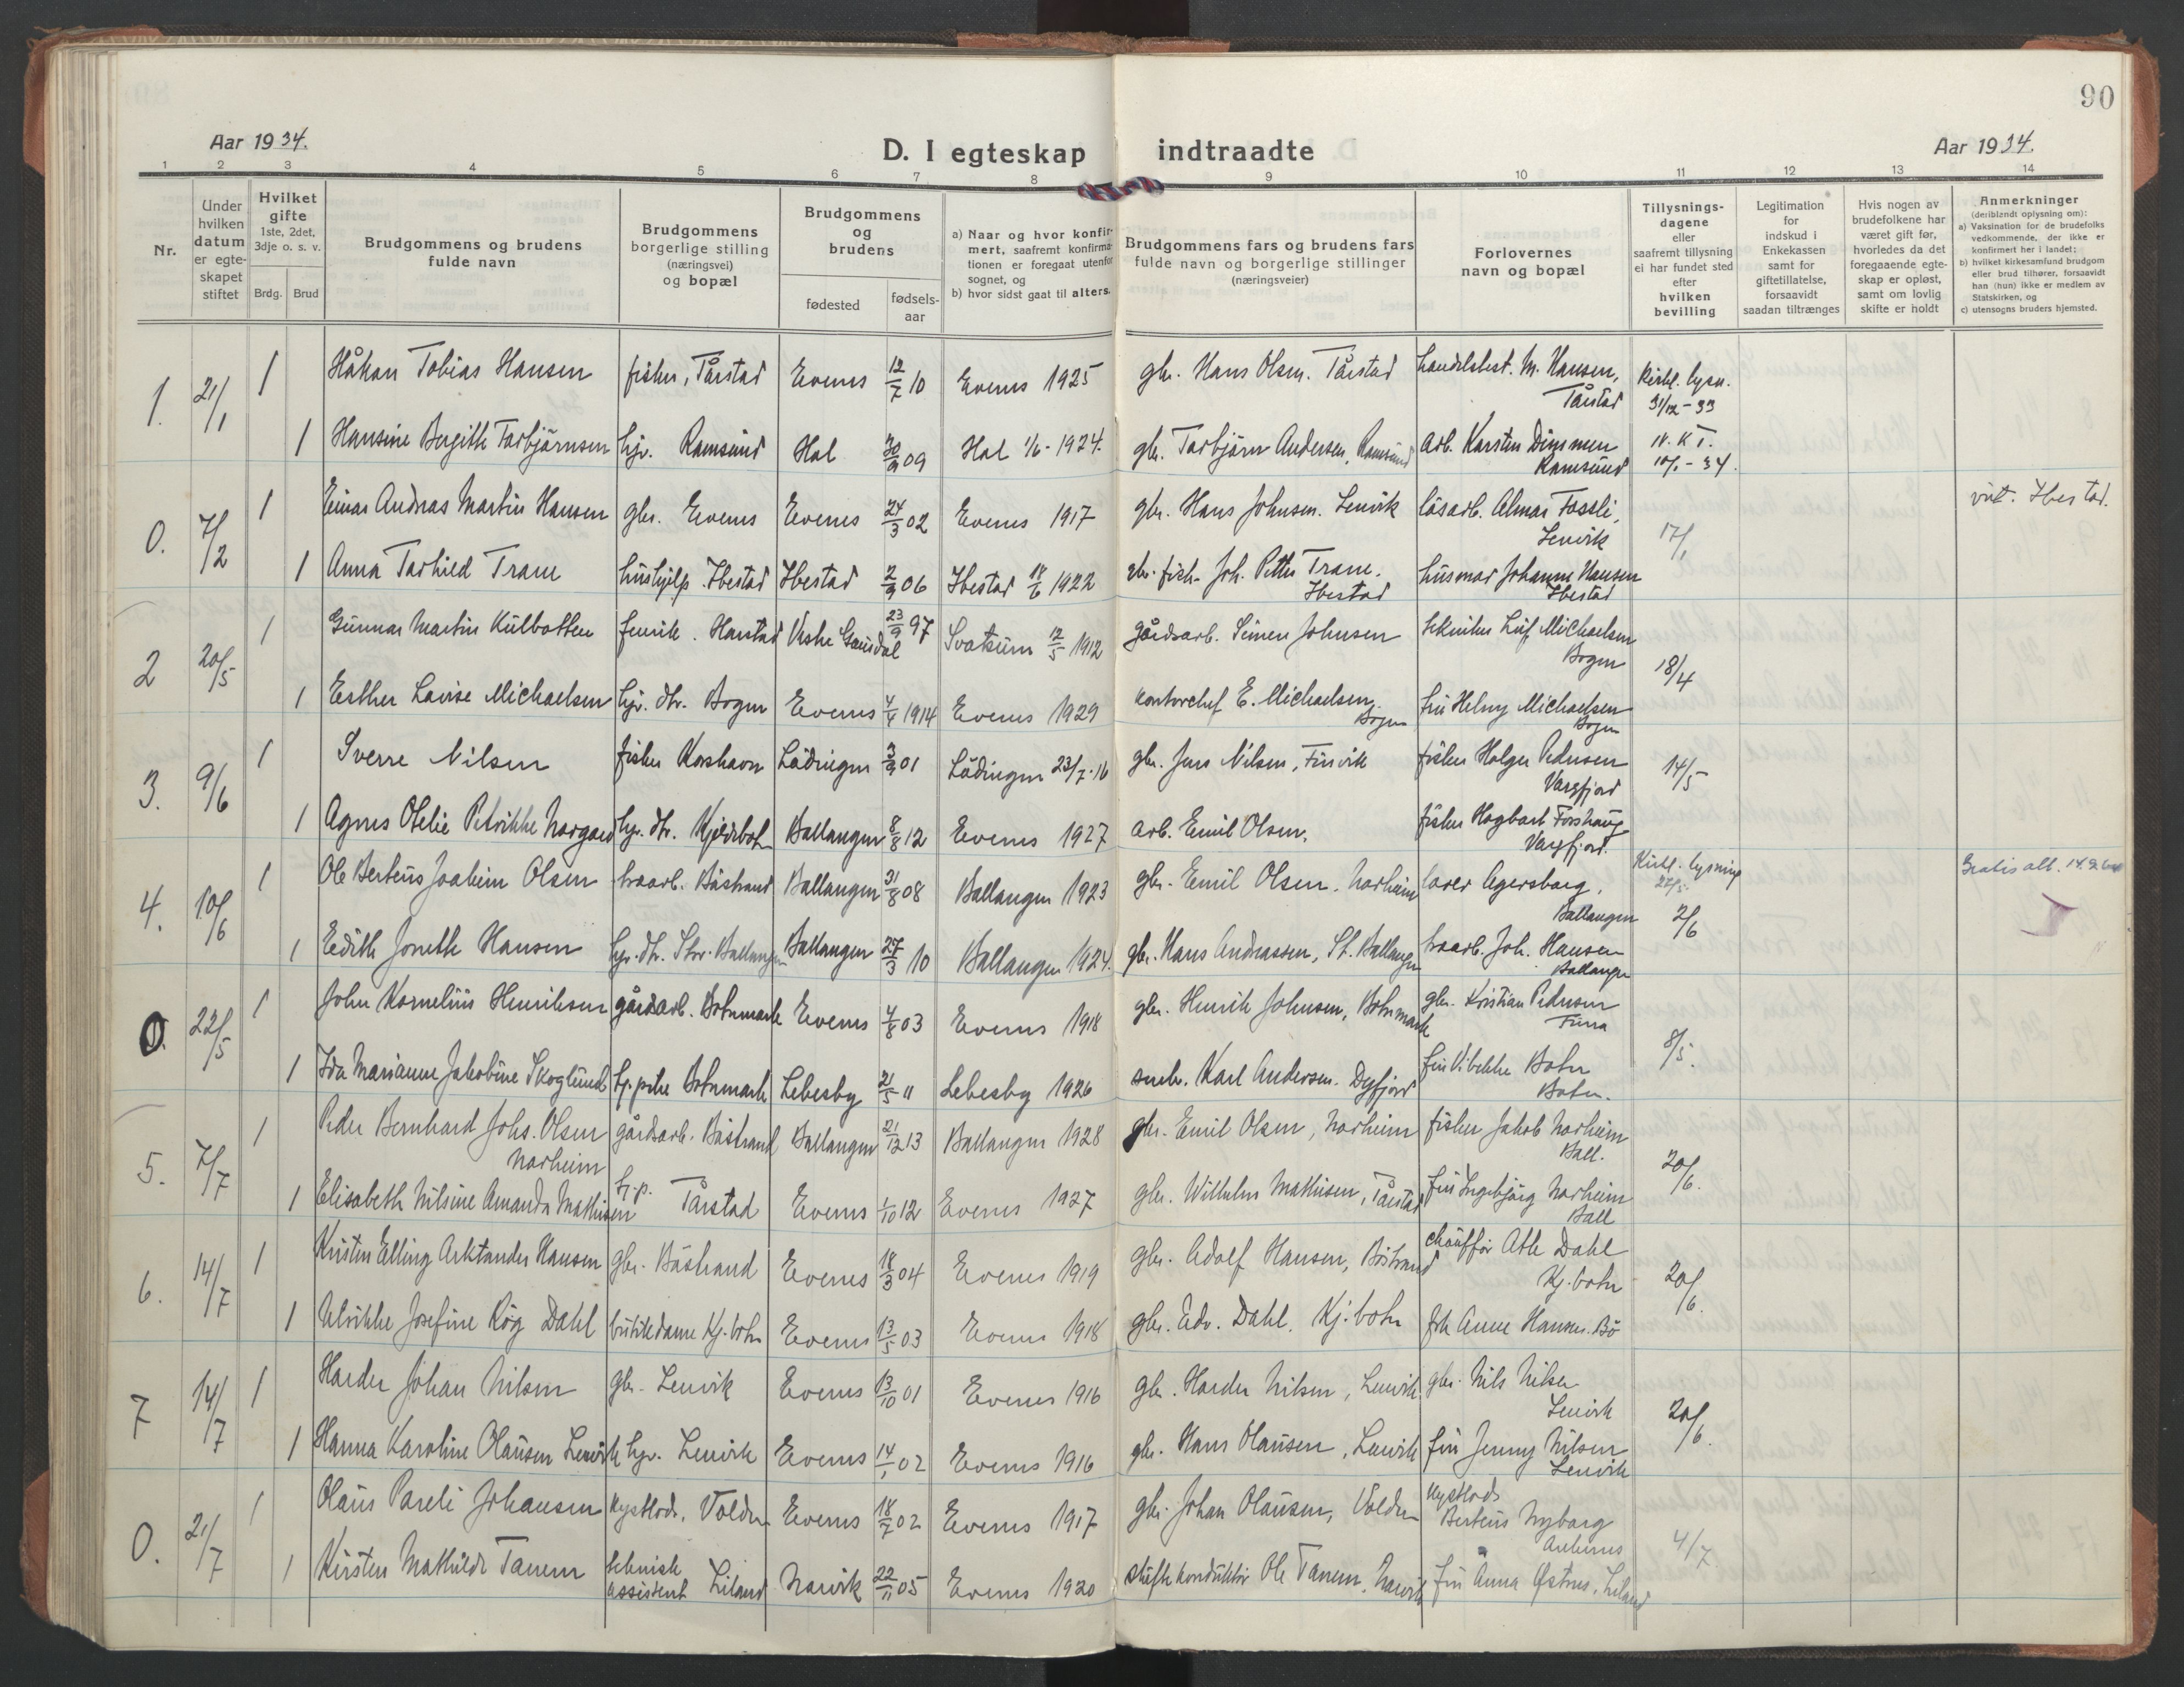 90
Aar 1934.
D. I egteskap indtraadte
Aar 1934.
1 2 3 4 5 6 7 8 9 10 11 12 13 14
Nr.
Under hvilken datum er egteskapet stiftet
Hvilket gifte 1ste, 2det, 3dje o. s. v.
Brdg. Brud
Brudgommens og brudens fulde navn
Brudgommens borgerlige stilling (næringsvei) og bopæl
Brudgommens og brudens
fødested
fødsels-aar
a) Naar og hvor konfirmert, saafremt konfirmationen er foregaat utenfor sognet, og
b) hvor sidst gaat til alters.
Brudgommens fars og brudens fars fulde navn og borgerlige stillinger (næringsveier)
Forlovernes navn og bopæl
Tillysningsdagene eller saafremt tillysning ei har fundet sted efter hvilken bevilling
Legitimation for indskud i Enkekassen samt for giftetillatelse, forsaavidt saadan tiltrænges
Hvis nogen av brudefolkene har været gift før, hvorledes da det foregaaende egteskap er opløst, samt om lovlig skifte er holdt
Anmerkninger (deriblandt oplysning om):
a) Vaksination for de brudefolks vedkommende, der ikke er konfirmert her i landet;
b) hvilket kirkesamfund brudgom eller brud tilhører, forsaavidt han (hun) ikke er medlem av Statskirken, og
c) utensogns bruders hjemsted.
1. 21/1 1 Håkon Tobias Hansen fisker, Tårstad Evenes 12/7 10 Evenes 1925 gbr. Hans Olsen. Tårstad handelsbest. M. Hansen, Tårstad Kirkl. lysn. 31/12-33
1 Hansine Bergith Torbjörnsen hjv. Ramsund Hol 30/9 09 Hol 1/6-1924. gbr. Torbjörn Andersen, Ramsund Arb. Karsten Dimmen Ramsund 10/1-34.
0. 7/2 1 Einar Andreas Martin Hansen gbr. Evenes Evenes 24/3 02 Evenes 1917 gbr. Hans Johnsen. Lenvik låsarb. Almar Fossli, Lenvik 17/1 viet. Ibestad.
1 Anna Torhild Trane hushjelp. Ibestad Ibestad 2/9 06 Ibestad 18/6 1922 Joh. Petter Trane. Ibestad husmor Johanne Hansen Ibestad
2 20/5 1 Gunnar Martin Kulbotten fenrik. Harstad Vestre Gausdal 23/9 97 Svatsum 12/5 1912 gårdsarb. Simen Johnsen tekniker Leif Michaelsen Bogen 18/4
1 Esther Lovise Michaelsen hjv. dtr. Bogen Evenes 4/4 1914 Evenes 1929 kontorchef E. Michaelsen. Bogen fru Helny Michaelsen Bogen
3. 9/6 1 Sverre Nilsen fisker Korshavn Lödingen 3/9 01 Lödingen 23/7-16 gbr. Jens Nilsen, Finvik fisker Holger Pedersen Vargfjord 14/5
1 Agnes Otelie Petrikke Norgaard hj. dtr. Kjeldebotn Ballangen 8/8 12 Evenes 1927 arb. Emil Olsen. fisker Hagbart Forshaug Vargfjord.
4. 10/6 1 Ole Berteus Joakim Olsen Båstrand Ballangen 31/8 08 Ballangen 1923 gbr. Emil Olsen. Norheim lærer Agersborg, Ballangen Kirkl. lysning 27/5 2/6 Gratis att.
1 Edith Jonette Hansen hj. dtr. Stor-Ballangen Ballangen 27/3 10 Ballangen 1924. gbr. Hans Andreassen, St. Ballangen Joh. Hansen Ballangen
0. 22/5 1 John Kornelius Henriksen gårdsarb. Botnmark Evenes 4/8 03 Evenes 1918 gbr. Henrik Johnsen, Botnmark gbr. Kristian Pedersen 8/5.
1 Ida Marianne Jakobine Skoglund hj. pike Botnmark Lebesby 21/5 11 Lebesby 1926 Karl Andersen. Dyfjord fru Vibekke Botn Botn.
5. 7/7 1 Peder Bernhard Johs. Olsen Norheim gårdsarb. Båstrand Ballangen 21/12 13 Ballangen 1928 gbr. Emil Olsen, Norheim fisker Jakob Norheim Ball. 20/6.
1 Elisabeth Nilsine Amanda Mathisen hj. p. Tårstad Evenes 1/10 12 Evenes 1927 gbr. Wilhelm Mathisen, Tårstad fru Ingebjörg Norheim Ball
6. 14/7 1 Kristen Elling Arktander Hansen gbr. Båstrand Evenes 18/3 04 Evenes 1919 gbr. Adolf Hansen, Båstrand chaufför Atle Dahl Kj. botn 20/6.
1 Ulrikke Josefine Rög Dahl butikdame Kj. botn Evenes 13/5 03 Evenes 1918 gbr. Edv. Dahl. Kj. botn frk Anne Hannes. Bö
7 14/7 1 Harder Johan Nilsen gbr. Lenvik Evenes 13/10 01 Evenes 1916 gbr. Harder Nilsen, Lenvik gbr. Nils Nilsen Lenvik 20/6.
1 Hanna Karoline Olausen Lenvik hjv. Lenvik Evenes 14/1 02 Evenes 1916 gbr. Hans Olausen, Lenvik fru Jenny Nilsen Lenvik
0. 21/7 1 Olaus Pareli Johansen kystlods. Volden Evenes 18/7 02 Evenes 1917 gbr. Johan Olausen, Volden kystlods Berteus Nyborg 4/7
1 Kirsten Mathilde Tanem teknisk assistent Liland Narvik 22/11 05 Evenes 1920 skiftekonduktör Ole Tanem, Narvik fru Anna Østnes, Liland